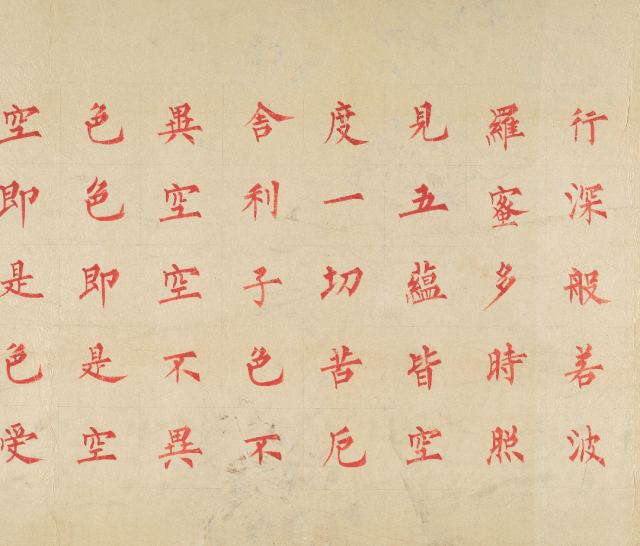 行深般若波
羅蜜多時照
見五蘊皆空
度一切苦厄
舍利子色不
異空空不異
色色即是空
空即是色受